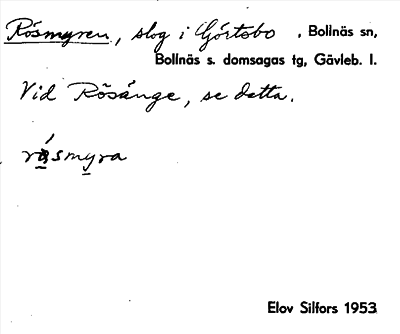 Rösmyren, slog i Görtsbo . Bollnäs sn,
Bollnäs s. domsagas tg, Gävleb. l.
Vid Rösänge, se detta.
rå̀smyra
Elov Silfors 1953